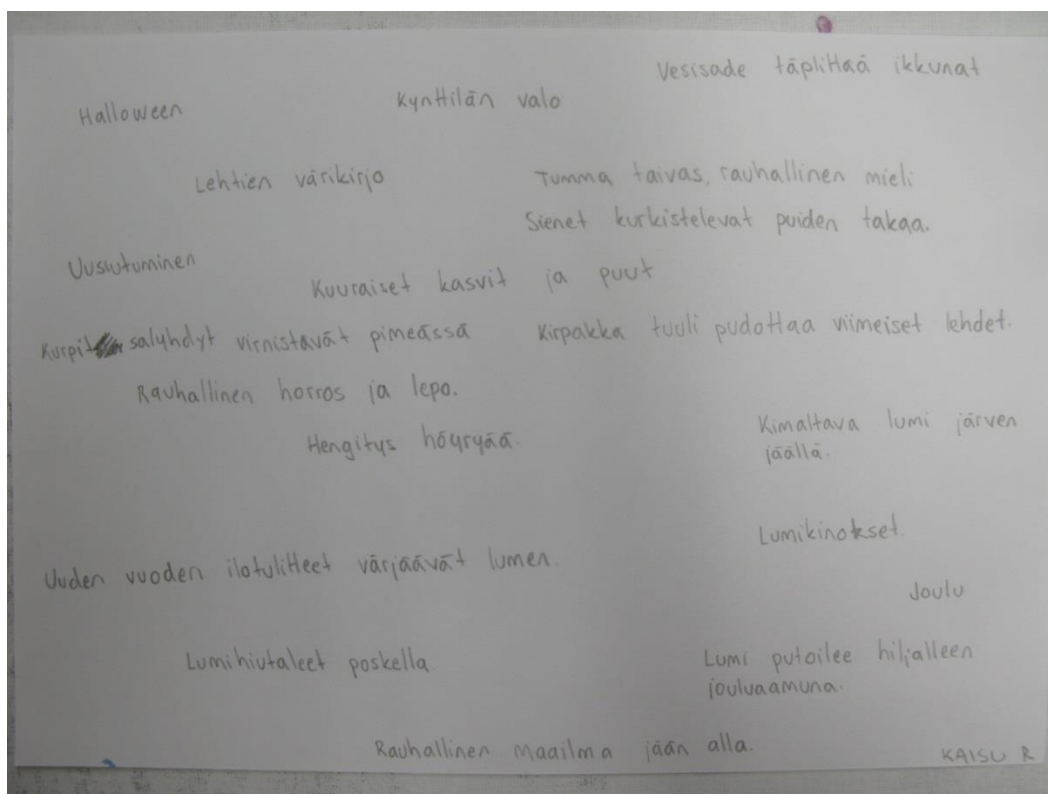 Vesisade täplittää ikkunat
Halloween
Kynttilän valo
Lehtien värikirjo
Tumma taivas, rauhallinen mieli
Sienet kurkistelevat puiden takaa.
Uusiutuminen
Kuuraiset kasvit ja puut
Kurpitsalyhdyt virnistävät pimeässä
Kirpakka tuuli pudottaa viimeiset lehdet.
Rauhallinen horros ja lepo.
Hengitys höyryää.
Kimaltava lumi järven
jäällä.
Lumikinokset.
Uuden vuoden ilotulitteet värjäävät lumen.
Joulu
Lumihiutaleet poskella
Lumi putoilee hiljalleen
jouluaamuna.
Rauhallinen maailma jään alla.
KAISU R